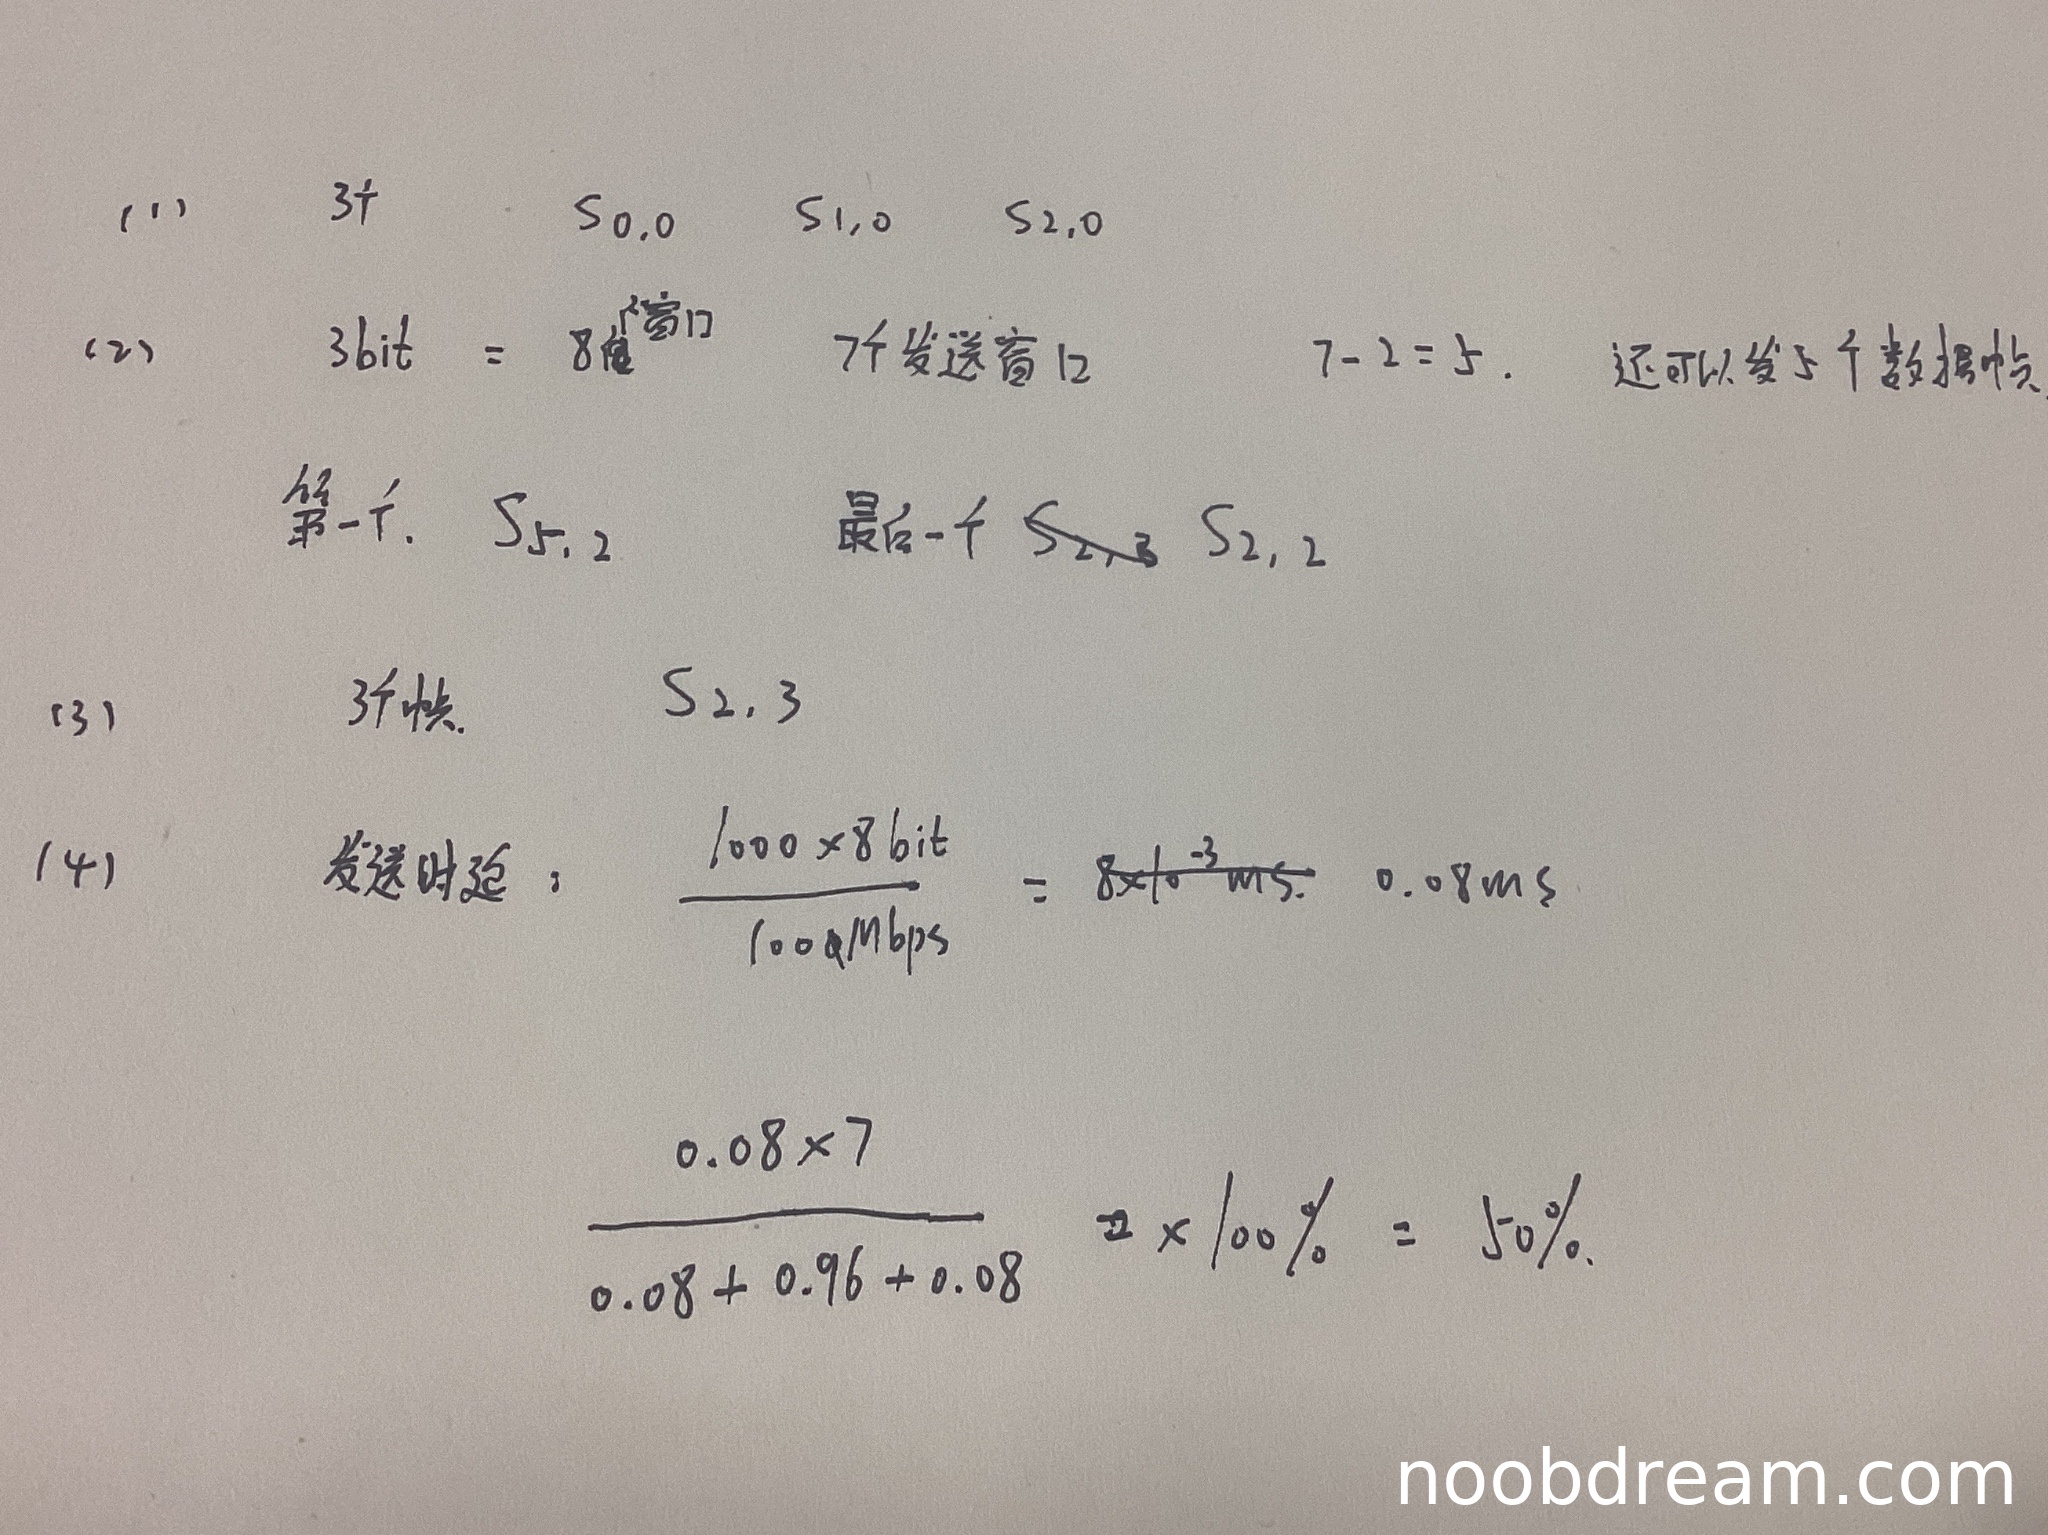 (1) 3个 S0,0 S1,0 S2,0
(2) 3bit = 8个窗口 7个发送窗口 7-2=5. 还可以发5个数据帧
第一个. S5,2 最后一个 S2,2
(3) 3个帧. S2,3
(4) 发送时延: 1000×8bit / 100Mbps = 0.08ms
0.08×7 / 0.08+0.96+0.08 ×100% = 50%.
noobdream.com